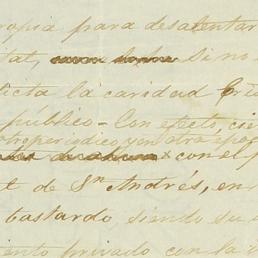 ropia para desalentar
tal, sino
icta la caridad Cris
público - Con efecto, cie
troperiodico y en otra epo
con el p
t de Sn Andrés, en
bastardo siendo su
iento privado con la